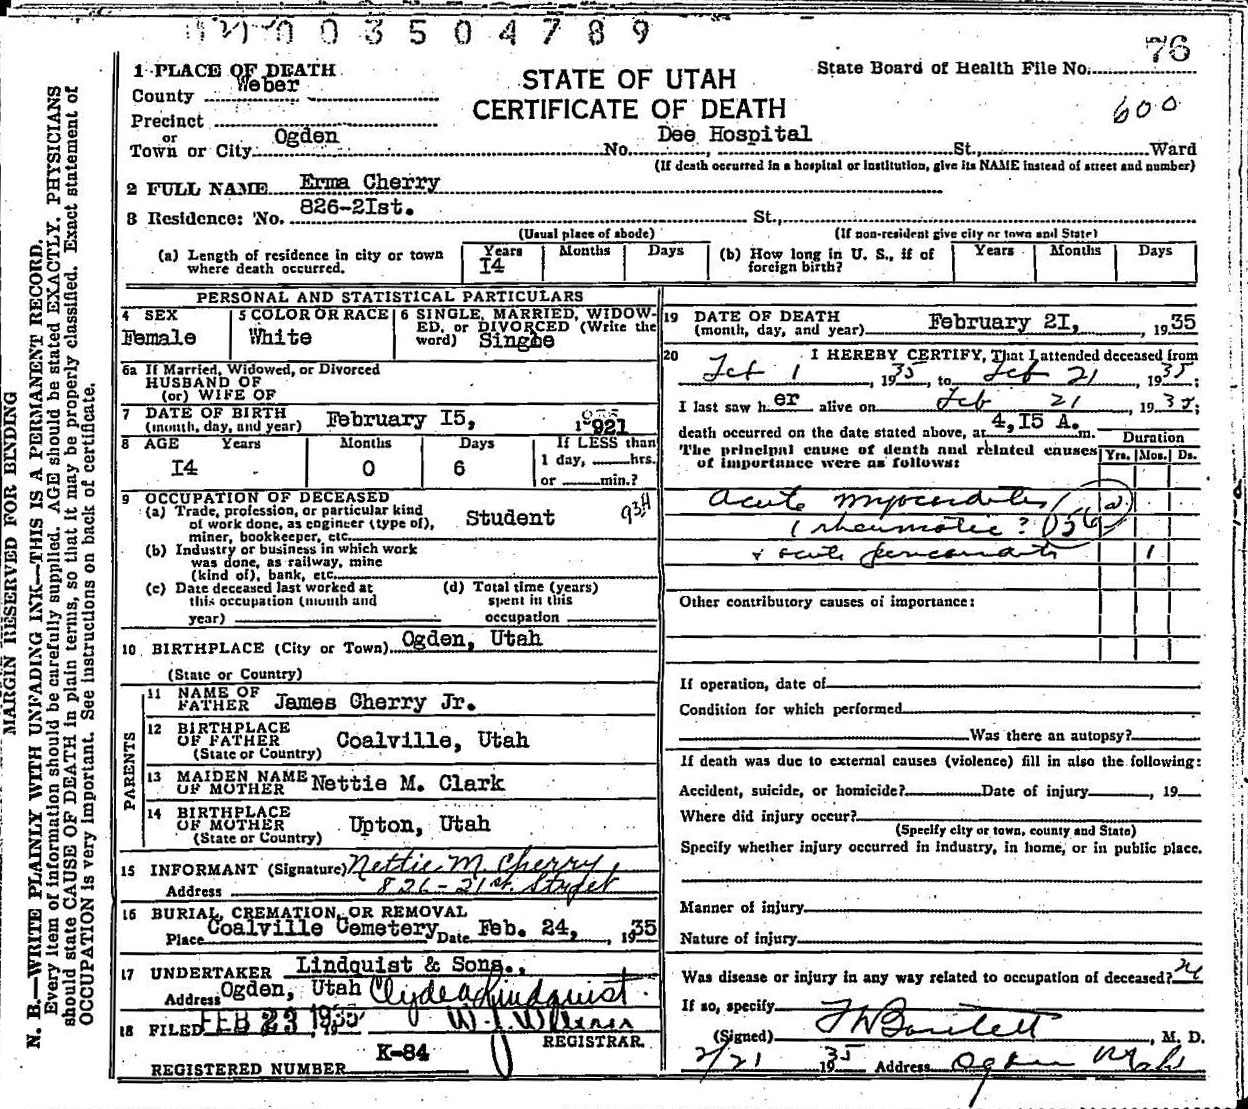 003504789
76
1 PLACE OF DEATH
County Weber
STATE OF UTAH
CERTIFICATE OF DEATH
State Board of Health File No.
600
Precinct
or
Town or City Ogden No. Dee Hospital St., Ward
(If death occurred in a hospital or institution, give its NAME instead of street and number)
2 FULL NAME Erma Cherry
3 Residence: No. 826-2Ist. St.,
(Usual place of abode) (If non-resident give city or town and State)
(a) Length of residence in city or town where death occurred. Years I4 Months Days
(b) How long in U. S., if of foreign birth? Years Months Days
PERSONAL AND STATISTICAL PARTICULARS
4 SEX Female
5 COLOR OR RACE White
6 SINGLE, MARRIED, WIDOWED, or DIVORCED (Write the word) Singbe
6a If Married, Widowed, or Divorced
HUSBAND OF
(or) WIFE OF
7 DATE OF BIRTH
(month, day, and year) February I5, 1921
8 AGE Years Months Days If LESS than
I4 0 6 1 day, hrs.
or min.?
9 OCCUPATION OF DECEASED
(a) Trade, profession, or particular kind
of work done, as engineer (type of),
miner, bookkeeper, etc. Student
934
(b) Industry or business in which work
was done, as railway, mine
(kind of), bank, etc.
(c) Date deceased last worked at
this occupation (month and
year)
(d) Total time (years)
spent in this
occupation
10 BIRTHPLACE (City or Town) Ogden, Utah
(State or Country)
PARENTS
11 NAME OF FATHER James Cherry Jr.
12 BIRTHPLACE OF FATHER Coalville, Utah
(State or Country)
13 MAIDEN NAME OF MOTHER Nettie M. Clark
14 BIRTHPLACE OF MOTHER Upton, Utah
(State or Country)
15 INFORMANT (Signature) Nettie M. Cherry
Address 826-21st. Street
16 BURIAL, CREMATION, OR REMOVAL
Place Coalville Cemetery Date Feb. 24, 1935
17 UNDERTAKER Lindquist & Sons.,
Address Ogden, Utah Clyde A Lindquist.
18 FILED FEB 23 1935
REGISTRAR.
K-84
REGISTERED NUMBER
19 DATE OF DEATH
(month, day, and year) February 2I, 1935
20 I HEREBY CERTIFY, That I attended deceased from
Feb 1, 1935, to Feb 21, 1935;
I last saw her alive on Feb 21, 1935;
death occurred on the date stated above, at 4,I5 A. m.
Duration
The principal cause of death and related causes Yrs. Mos. Ds.
of importance were as follows:
Acute Myocarditis
(rheumatic? 056
& acute pericarditis 1
Other contributory causes of importance:
If operation, date of
Condition for which performed
Was there an autopsy?
If death was due to external causes (violence) fill in also the following:
Accident, suicide, or homicide? Date of injury , 19
Where did injury occur?
(Specify city or town, county and State)
Specify whether injury occurred in industry, in home, or in public place.
Manner of injury
Nature of injury
Was disease or injury in any way related to occupation of deceased?
If so, specify
(Signed) , M. D.
2/21 1935 Address Ogden Utah
MARGIN RESERVED FOR BINDING
N. B.—WRITE PLAINLY WITH UNFADING INK—THIS IS A PERMANENT RECORD.
Every item of information should be carefully supplied. AGE should be stated EXACTLY. PHYSICIANS
should state CAUSE OF DEATH in plain terms, so that it may be properly classified. Exact statement of
OCCUPATION is very important. See instructions on back of certificate.